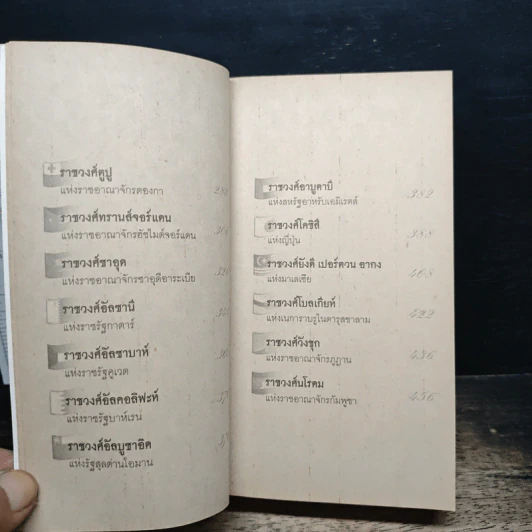 ราชวงศ์ตูปู
แห่งราชอาณาจักรตองกา
ราชวงศ์ทรานส์จอร์แดน
แห่งราชอาณาจักรฮัชไมต์จอร์แดน
ราชวงศ์ซาอุด
แห่งราชอาณาจักรซาอุดีอาระเบีย
ราชวงศ์อัลซานี
แห่งราชรัฐกาตาร์
ราชวงศ์อัลซาบาห์
แห่งราชรัฐคูเวต
ราชวงศ์อัลคอลิฟะห์
แห่งราชรัฐบาห์เรน
ราชวงศ์อัลบูซาอิด
แห่งรัฐสุลต่านโอมาน
ราชวงศ์อาบูดาบี 382
แห่งสหรัฐอาหรับเอมิเรตส์
ราชวงศ์โคชิสึ 388
แห่งญี่ปุ่น
ราชวงศ์ยังดี เปอร์ตวน อากง 408
แห่งมาเลเซีย
ราชวงศ์โบลเกียห์ 422
แห่งเนการาบรูไนดารุสซาลาม
ราชวงศ์วังชุก 436
แห่งราชอาณาจักรภูฏาน
ราชวงศ์นโรดม 456
แห่งราชอาณาจักรกัมพูชา